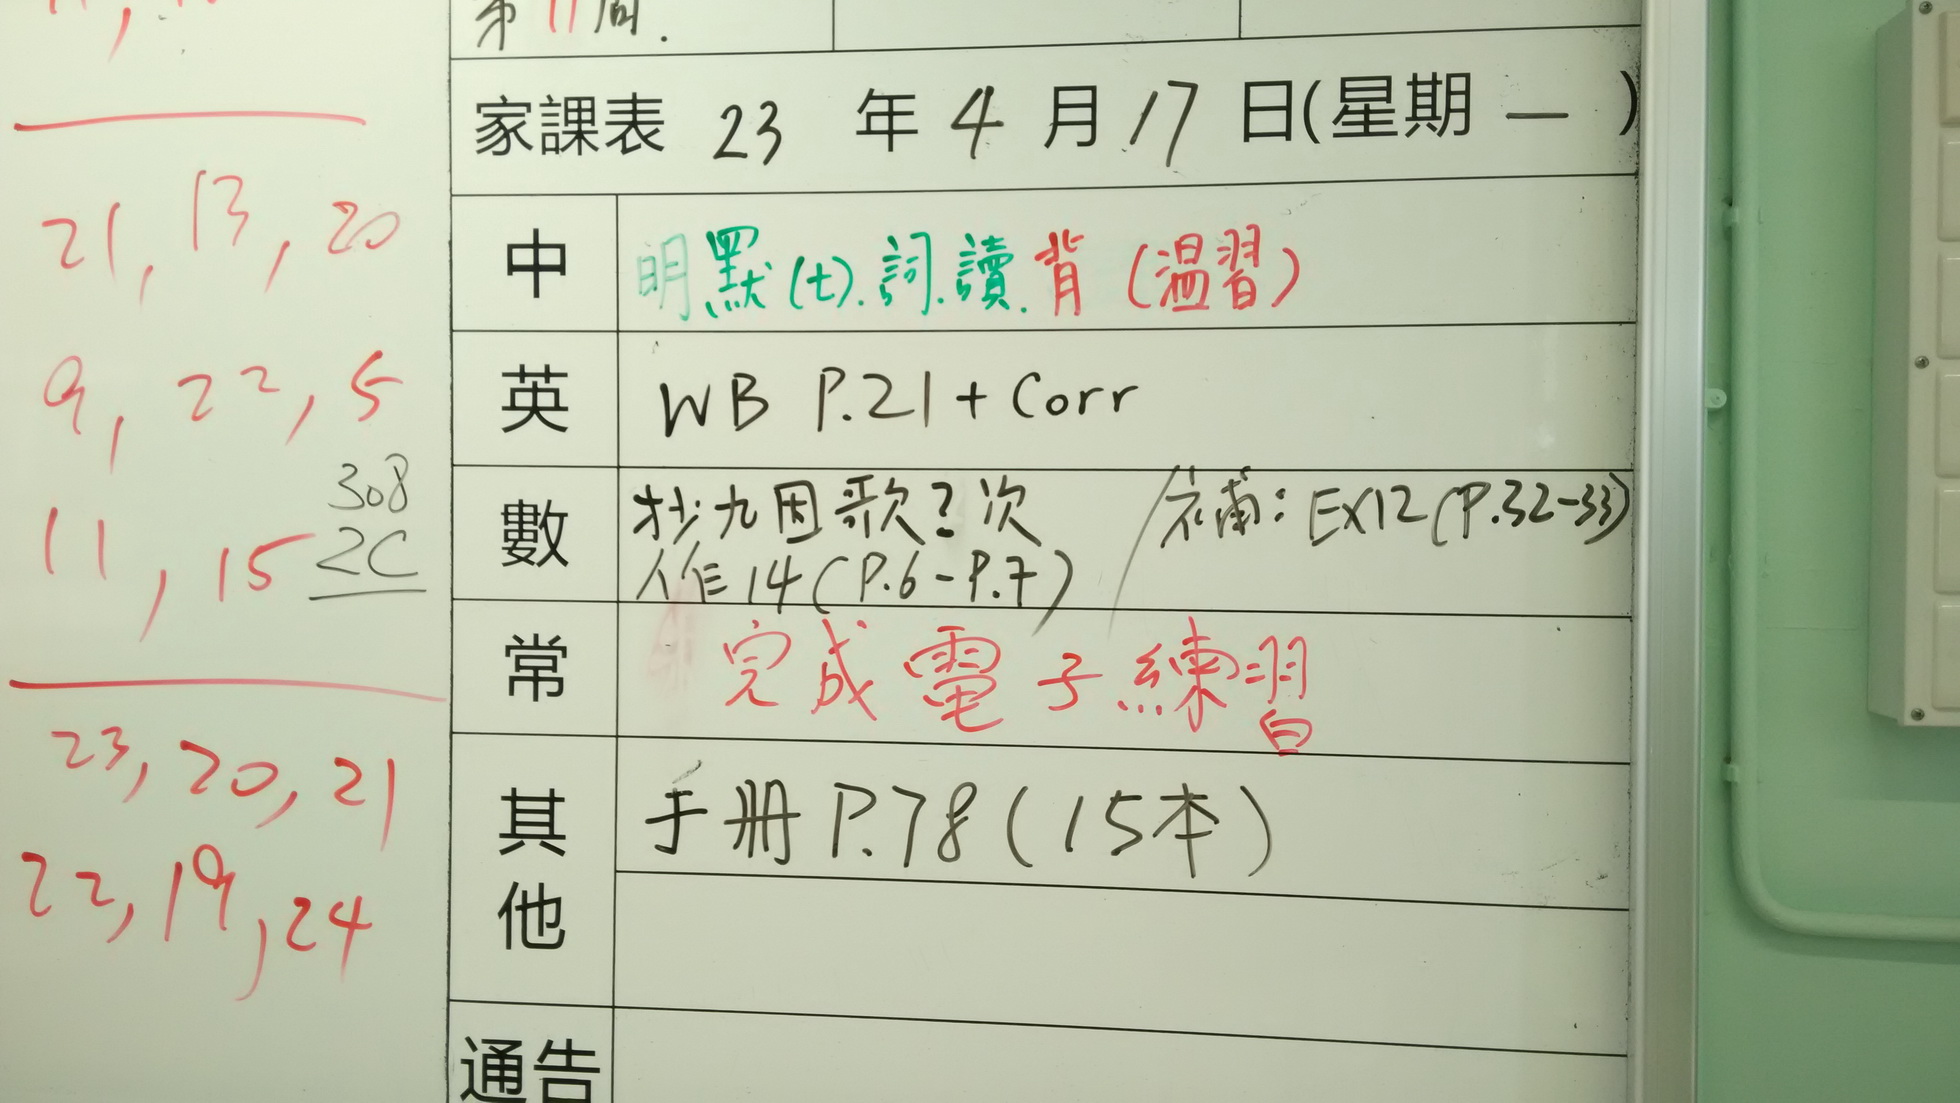 第11周.
家課表 23 年 4 月 17 日(星期 一 )
21, 13, 20
中 明默(七).詞.讀.背(溫習)
9, 22, 5
英 WB P.21 + Corr
308
11, 15 2C
數 抄九因歌2次 / 補: EX12(P.32-33)
作14(P.6-P.7)
常 完成電子練習
23, 20, 21
其他 手册 P.78(15本)
22, 19, 24
通告